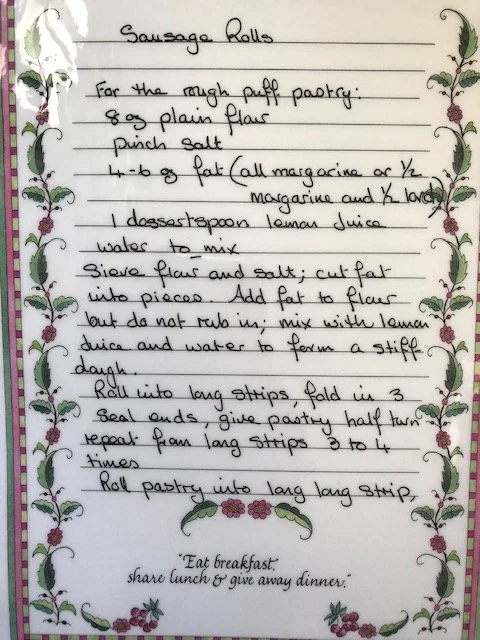 Sausage Rolls
For the rough puff pastry:
8 oz plain flour
pinch salt
4-6 oz fat (all margarine or ½
margarine and ½ lard)
1 dessertspoon lemon juice
water to mix
Sieve flour and salt; cut fat
into pieces. Add fat to flour
but do not rub in; mix with lemon
juice and water to form a stiff
dough.
Roll into long strips, fold in 3
seal ends, give pastry half turn
repeat from long strips 3 to 4
times
Roll pastry into long long strip,
"Eat breakfast,
share lunch & give away dinner."